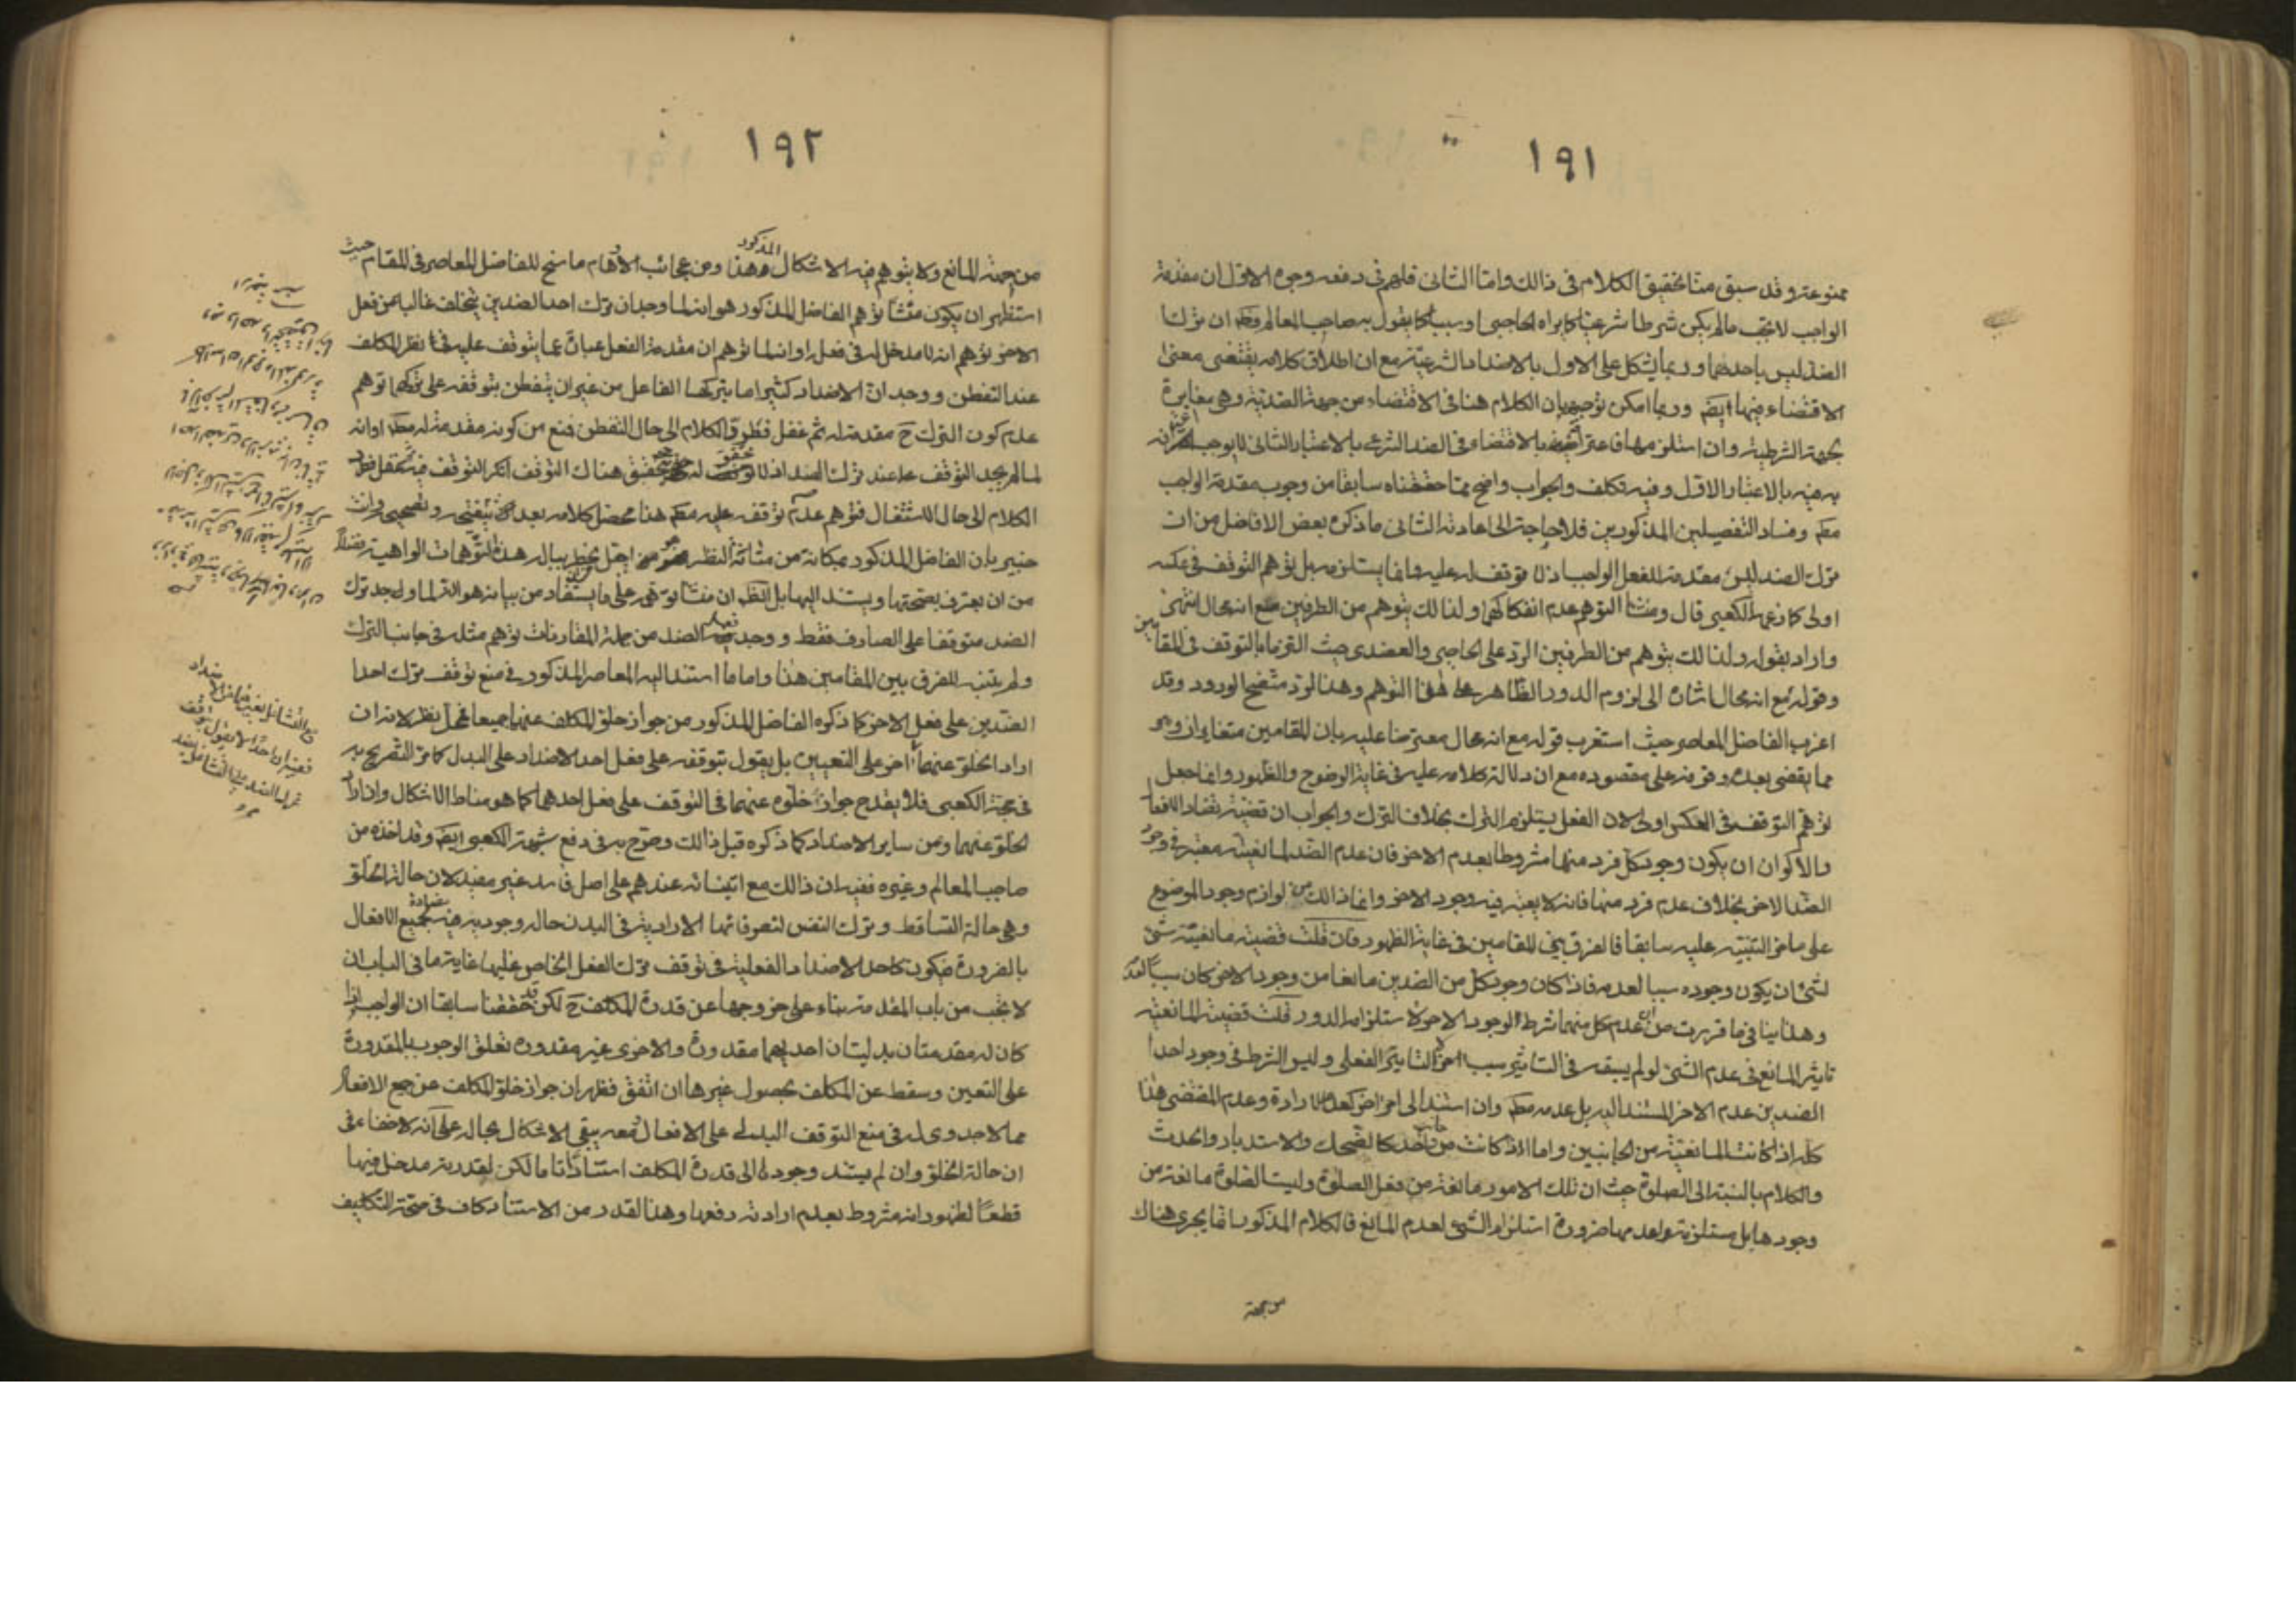 ١٩١
ممنوعة وقد سبق منا تحقيق الكلام فى ذلك واما الثانى فلهم فى دفعه وجوه الاول ان مقدمة
الواجب لا تجب ما لم يكن شرطا شرعيا كما يراه الحاجبى او سببا كما يقول به صاحب المعالم وظ ان ترك
الضد ليس باحدهما وربما يشكل على الاول بالاضداد الشرعية مع ان اطلاق كلامه يقتضى معنى
الاقتضاء فيها ايض وربما امكن توجيهه بان الكلام هنا فى الاقتضاء من جهة الضدية وهى مغايرة
بجهة الشرطية وان استلزمها فاعترافه بالاقتضاء فى الضد الشرعى بالاعتبار الثانى لا يوجب اعترافه
به فيه بالاعتبار الاول وفيه تكلف والجواب واضح مما حققناه سابقا من وجوب مقدمة الواجب
مطم وفساد التفصيلين المذكورين فلا حاجة الى اعادته الثانى ما ذكره بعض الافاضل من ان
ترك الضد ليس مقدمة للفعل الواجب اذ لا توقف له عليه وانما يستلزمه بل توهم التوقف فى عكسه
اولى كما زعمه الكعبى قال ومنشأ التوهم عدم انفكاكهما ولذالك يتوهم من الطرفين مع انه محال انتهى
واراد بقوله ولذالك يتوهم من الطرفين الرد على الحاجبى والعضدى حيث التزما بالتوقف فى المقامين
وقوله مع انه محال اشارة الى لزوم الدور الظاهر على هذا التوهم وهذا لرد متضح الورود وقد
اغرب الفاضل المعاصر حيث استغرب قوله مع انه محال معترضا عليه بان المقامين متغايران وهو
مما يقضى ببعده وقوفه على مقصوده مع ان دلالة كلامه عليه فى غاية الوضوح والظهور وانما جعل
توهم التوقف فى العكس اولى لان الفعل يستلزم الترك بخلاف الترك والجواب ان قضية تضاد الافعال
والاكوان ان يكون وجود كل فرد منها مشروطا بعدم الاخر فان عدم الضد لمانعيته معتبر فى وجود
الضد الاخر بخلاف عدم فرد منها فانه لا يعتبر فيه وجود الاخر وانما ذالك من لوازم وجود الموضوع
على ما مر التنبيه عليه سابقا فالفرق بين المقامين فى غاية الظهور فان قلت قضية مانعية شئ
لشئ ان يكون وجوده سببا لعدمه فاذا كان وجود كل من الضدين مانعا من وجود الاخر كان سببا لعدمه
وهذا ينافى ما قررت من ان عدم كل منهما شرط لوجود الاخر لاستلزامه الدور قلت قضية المانعية
تاثير المانع فى عدم الشئ لو لم يسبقه فى التاثير سبب اخر لا التاثير الفعلى وليس الشرط فى وجود احد
الضدين عدم الاخر المستند اليه بل عدمه مطم وان استند الى امر اخر كعدم الارادة وعدم المقتضى هذا
كله اذا كانت المانعية من الجانبين واما اذا كانت من جانب واحد كالضحك والاستدبار والحدث
والكلام بالنسبة الى الصلوة حيث ان تلك الامور مانعة من فعل الصلوة وليست الصلوة مانعة من
وجودها بل مستلزمة لعدمها ضرورة استلزام الشئ لعدم المانع فالكلام المذكور انما يجرى هناك
من جهة
١٩٢
من جهة المانع ولا يتوهم فيه الاشكال المذكور هذا ومن عجائب الاوهام ما سنح للفاضل المعاصر فى المقام حيث
استظهر ان يكون منشأ توهم الفاضل المذكور هو انه لما وجد ان ترك احد الضدين يتخلف غالبا عن فعل
الاخر توهم انه لا مدخل له فى فعله او انه لما توهم ان مقدمة الفعل عبارة عما يتوقف عليه فى نظر المكلف
عند التفطن ووجد ان الاضداد كثيرا ما يتركها الفاعل من غير ان يتفطن بتوقفه على تركها توهم
عدم كون الترك ح مقدمة له ثم غفل فطرق الكلام الى حال التفطن فمنع من كونه مقدمة له مطم او انه
لما لم يجد التوقف عند ترك الضد اذ لا توقف هناك التوقف انكر التوقف فيه
الكلام الى حال الاشتغال فتوهم عدم توقفه عليه مطم هذا محصل كلامه بعد وانت
خبير بان الفاضل المذكور بمكانة من متانة النظر من ان يخطر بباله هذه التوهمات الواهية فضلا
من ان يعترف بصحتها ويستند اليها بل الظ ان منشأ توهمه على ما يستفاد من بيانه هو انه لما وجد ترك
الضد متوقفا على الصارف فقط ووجد فعل الضد من جملة المقارنات توهم مثله فى جانب الترك
ولم يتنبه للفرق بين المقامين هذا واما ما استند اليه المعاصر المذكور فى منع توقف ترك احد
الضدين على فعل الاخر كما ذكره الفاضل المذكور من جواز خلو المكلف عنهما جميعا فمحل نظر لانه ان
اراد الخلو عنهما اخر على التعيين بل يقول بتوقفه على فعل احد الاضداد على البدل كما مر التصريح به
فى حجة الكعبى فلا يقدح جواز خلوه عنهما فى التوقف على فعل احدهما كما هو مناط الاشكال وان اراد
الخلو عنهما ومن ساير الاضداد كما ذكره قبل ذالك وصرح به فى دفع شبهة الكعبى ايض وقد اخذه من
صاحب المعالم وغيره ففيه ان ذالك مع ابتنائه عندهم على اصل فاسد غير مفيد لان حالة الخلو
وهى حالة التساقط وترك النفس لتصرفاتها الارادية فى البدن حالة وجودية مضادة لجميع الافعال
بالضرورة فيكون كاحد الاضداد الفعلية فى توقف ترك الفعل الخاص عليها غاية ما فى الباب ان
لا تجب من باب المقدمة بناء على خروجها عن قدرة المكلف ح لكن قد حققنا سابقا ان الواجب اذا
كان له مقدمتان بدليتان احديهما مقدورة والاخرى غير مقدورة تعلق الوجوب بالمقدورة
على التعيين وسقط عن المكلف بحصول غيرها ان اتفق فظهر ان جواز خلو المكلف عن جميع الافعال
مما لا جدوى له فى منع التوقف البدلى على الافعال معه يبقى الاشكال بحاله على انه لا خفاء فى
ان حالة الخلو وان لم يستند وجودها الى قدرة المكلف استنادا تاما لكن لقدرته مدخل فيها
قطعا لظهور انه مشروط بعدم ارادته رفعها وهذا القدر من الاستناد كاف فى صحة التكليف